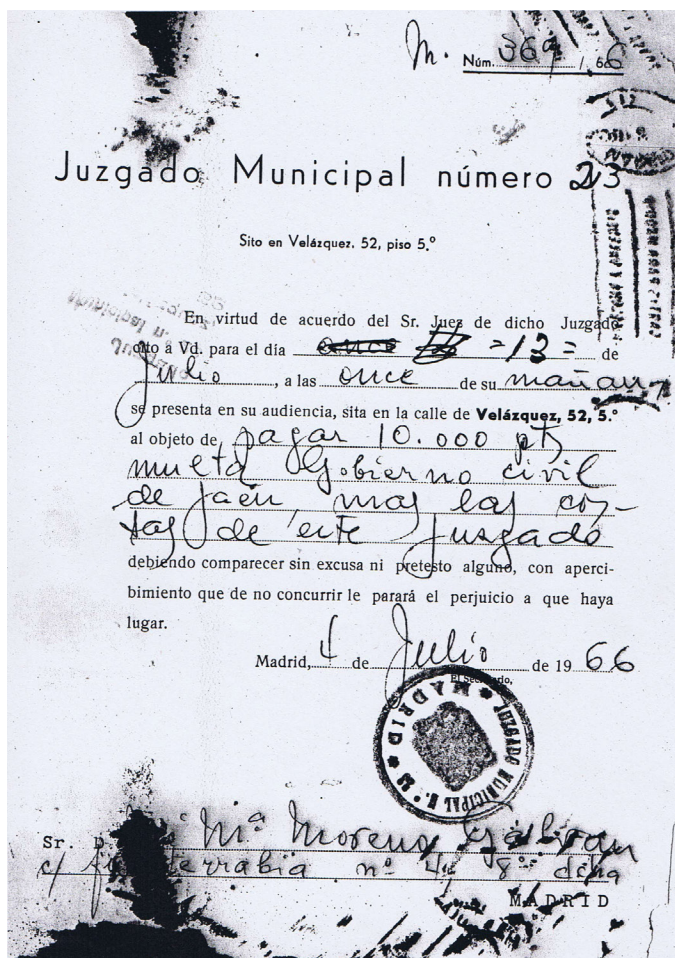 M. Núm. 369 / 66
Juzgado Municipal número 23
Sito en Velázquez. 52, piso 5.º
En virtud de acuerdo del Sr. Juez de dicho Juzgado
cito a Vd. para el día =13= de
Julio, a las once de su mañana
se presenta en su audiencia, sita en la calle de Velázquez, 52, 5.º
al objeto de pagar 10.000 pts
multa Gobierno civil
de Jaén, mas las cos-
tas de este Juzgado
debiendo comparecer sin excusa ni pretesto alguno, con aperci-
bimiento que de no concurrir le parará el perjuicio a que haya
lugar.
Madrid, 4 de Julio de 19 66
El Secretario,
JUZGADO MUNICIPAL N.º 23 * MADRID *
Sr. D. Mª Moreno Galvan
c/ Fuenterrabia nº 4 8º dcha
MADRID